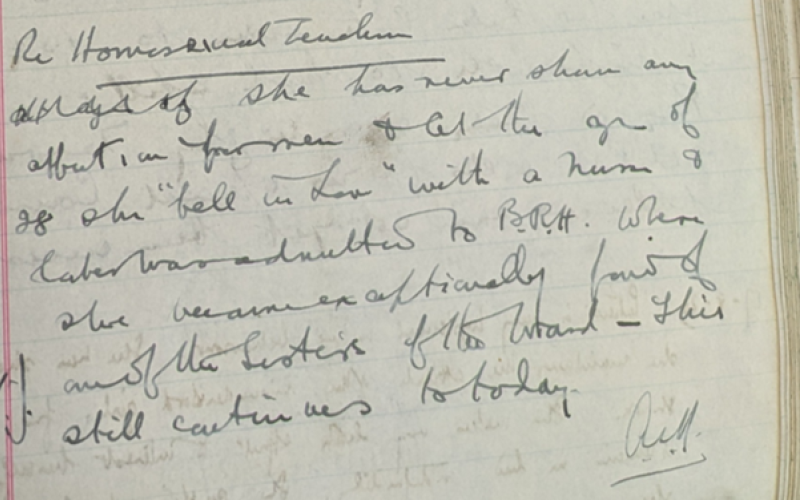 Re Homosexual Tendem
she has never shown any
affection for men & at the age of
28 she "fell in Love" with a nurse &
later was admitted to B.R.H. where
she became exceptionally fond of
one of the Sisters of the Ward - This
still continues to today.